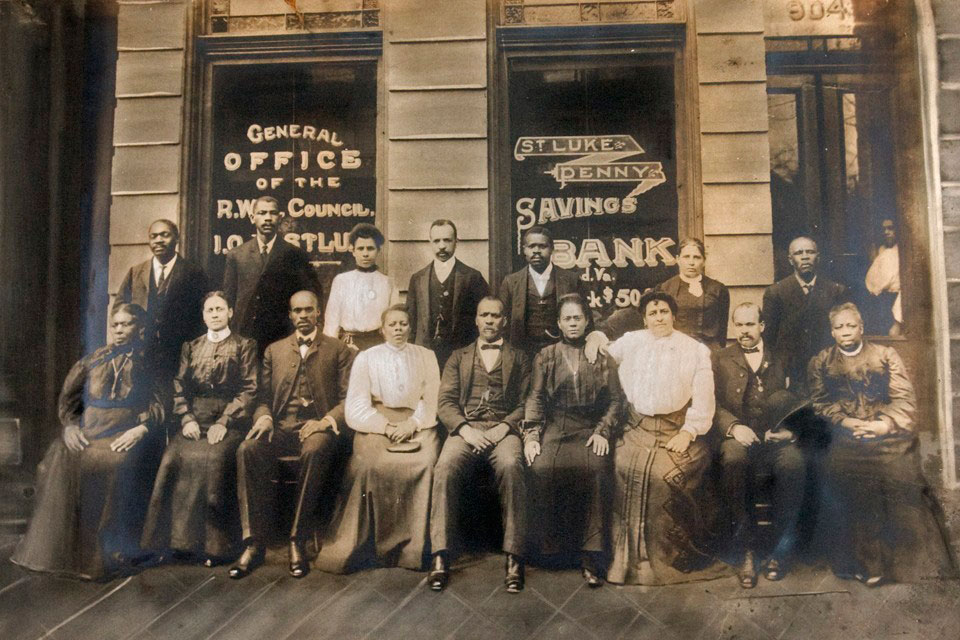 904
GENERAL
OFFICE
OF THE
R.W. COUNCIL.
I.O. ST LU
ST LUKE
PENNY
SAVINGS
BANK
d, Va.
k $50